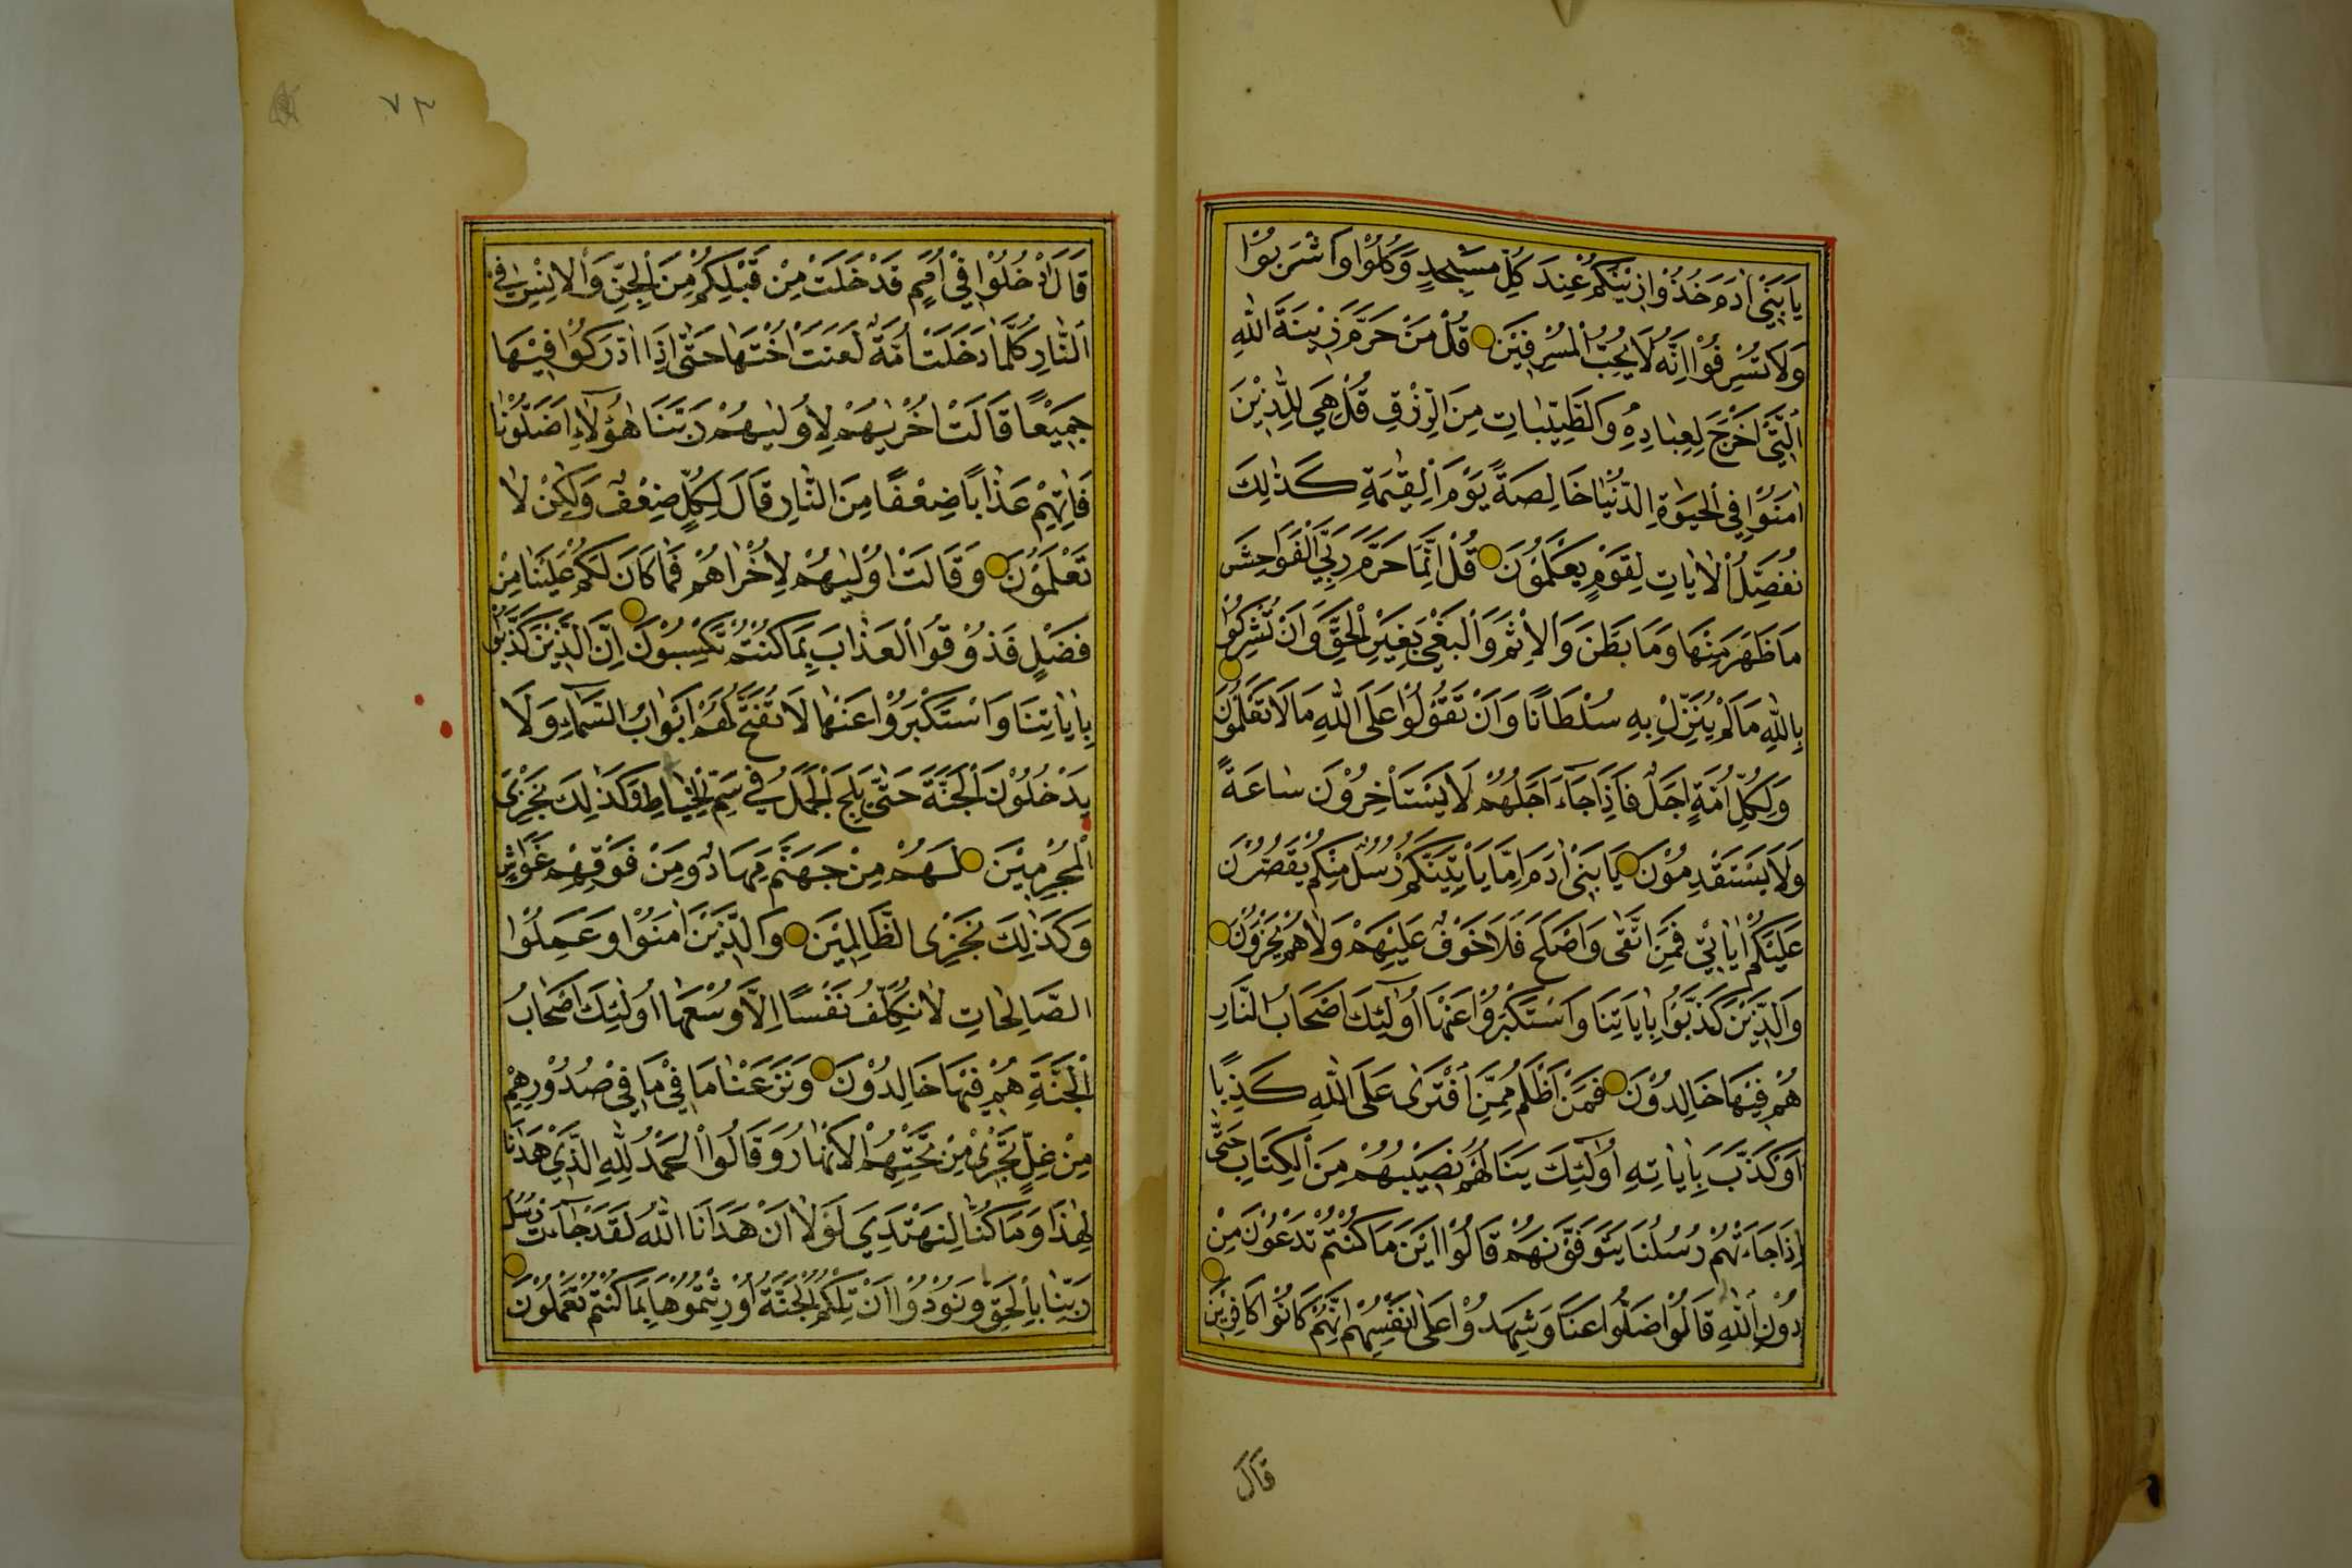 يَا بَنِي اٰدَمَ خُذُوْا زِيْنَتَكُمْ عِنْدَ كُلِّ مَسْجِدٍ وَكُلُوْا وَاشْرَبُوْا
وَلَا تُسْرِفُوْا اِنَّهُ لَا يُحِبُّ الْمُسْرِفِيْنَ قُلْ مَنْ حَرَّمَ زِيْنَةَ اللّٰهِ
الَّتِيْ اَخْرَجَ لِعِبَادِهِ وَالطَّيِّبَاتِ مِنَ الرِّزْقِ قُلْ هِيَ لِلَّذِيْنَ
اٰمَنُوْا فِي الْحَيٰوةِ الدُّنْيَا خَالِصَةً يَوْمَ الْقِيٰمَةِ كَذٰلِكَ
نُفَصِّلُ الْاٰيَاتِ لِقَوْمٍ يَعْلَمُوْنَ قُلْ اِنَّمَا حَرَّمَ رَبِّيَ الْفَوَاحِشَ
مَا ظَهَرَ مِنْهَا وَمَا بَطَنَ وَالْاِثْمَ وَالْبَغْيَ بِغَيْرِ الْحَقِّ وَاَنْ تُشْرِكُوْا
بِاللّٰهِ مَا لَمْ يُنَزِّلْ بِهِ سُلْطَانًا وَاَنْ تَقُوْلُوْا عَلَى اللّٰهِ مَا لَا تَعْلَمُوْنَ
وَلِكُلِّ اُمَّةٍ اَجَلٌ فَاِذَا جَاۤءَ اَجَلُهُمْ لَا يَسْتَأْخِرُوْنَ سَاعَةً
وَلَا يَسْتَقْدِمُوْنَ يَا بَنِيْ اٰدَمَ اِمَّا يَأْتِيَنَّكُمْ رُسُلٌ مِنْكُمْ يَقُصُّوْنَ
عَلَيْكُمْ اٰيَاتِيْ فَمَنِ اتَّقٰى وَاَصْلَحَ فَلَا خَوْفٌ عَلَيْهِمْ وَلَا هُمْ يَحْزَنُوْنَ
وَالَّذِيْنَ كَذَّبُوْا بِاٰيَاتِنَا وَاسْتَكْبَرُوْا عَنْهَا اُولٰۤئِكَ اَصْحَابُ النَّارِ
هُمْ فِيْهَا خَالِدُوْنَ فَمَنْ اَظْلَمُ مِمَّنِ افْتَرٰى عَلَى اللّٰهِ كَذِبًا
اَوْ كَذَّبَ بِاٰيَاتِهِ اُولٰۤئِكَ يَنَالُهُمْ نَصِيْبُهُمْ مِنَ الْكِتَابِ حَتّٰى
اِذَا جَاءَتْهُمْ رُسُلُنَا يَتَوَفَّوْنَهُمْ قَالُوْا اَيْنَ مَا كُنْتُمْ تَدْعُوْنَ مِنْ
دُوْنِ اللّٰهِ قَالُوْا ضَلُّوْا عَنَّا وَشَهِدُوْا عَلٰى اَنْفُسِهِمْ اَنَّهُمْ كَانُوْا كَافِرِيْنَ
قَالَ
٧٣
قَالَ ادْخُلُوْا فِيْ اُمَمٍ قَدْ خَلَتْ مِنْ قَبْلِكُمْ مِنَ الْجِنِّ وَالْاِنْسِ فِي
النَّارِ كُلَّمَا دَخَلَتْ اُمَّةٌ لَعَنَتْ اُخْتَهَا حَتّٰى اِذَا ادّٰرَكُوْا فِيْهَا
جَمِيْعًا قَالَتْ اُخْرٰيهُمْ لِاُوْلٰيهُمْ رَبَّنَا هٰۤؤُلَاءِ اَضَلُّوْنَا
فَاٰتِهِمْ عَذَابًا ضِعْفًا مِنَ النَّارِ قَالَ لِكُلٍّ ضِعْفٌ وَلٰكِنْ لَا
تَعْلَمُوْنَ وَقَالَتْ اُوْلٰيهُمْ لِاُخْرَاهُمْ فَمَا كَانَ لَكُمْ عَلَيْنَا مِنْ
فَضْلٍ فَذُوْقُوا الْعَذَابَ بِمَا كُنْتُمْ تَكْسِبُوْنَ اِنَّ الَّذِيْنَ كَذَّبُوْا
بِاٰيَاتِنَا وَاسْتَكْبَرُوْا عَنْهَا لَا تُفَتَّحُ لَهُمْ اَبْوَابُ السَّمَاۤءِ وَلَا
يَدْخُلُوْنَ الْجَنَّةَ حَتّٰى يَلِجَ الْجَمَلُ فِيْ سَمِّ الْخِيَاطِ وَكَذٰلِكَ نَجْزِي
الْمُجْرِمِيْنَ لَهُمْ مِنْ جَهَنَّمَ مِهَادٌ وَمِنْ فَوْقِهِمْ غَوَاشٍ
وَكَذٰلِكَ نَجْزِي الظَّالِمِيْنَ وَالَّذِيْنَ اٰمَنُوْا وَعَمِلُوْا
الصَّالِحَاتِ لَا نُكَلِّفُ نَفْسًا اِلَّا وُسْعَهَا اُولٰۤئِكَ اَصْحَابُ
الْجَنَّةِ هُمْ فِيْهَا خَالِدُوْنَ وَنَزَعْنَا مَا فِيْ مَا فِيْ صُدُوْرِهِمْ
مِنْ غِلٍّ تَجْرِيْ مِنْ تَحْتِهِمُ الْاَنْهَارُ وَقَالُوا الْحَمْدُ لِلّٰهِ الَّذِيْ هَدَانَا
لِهٰذَا وَمَا كُنَّا لِنَهْتَدِيَ لَوْلَا اَنْ هَدَانَا اللّٰهُ لَقَدْ جَاۤءَتْ رُسُلُ
رَبِّنَا بِالْحَقِّ وَنُوْدُوْا اَنْ تِلْكُمُ الْجَنَّةُ اُوْرِثْتُمُوْهَا بِمَا كُنْتُمْ تَعْمَلُوْنَ